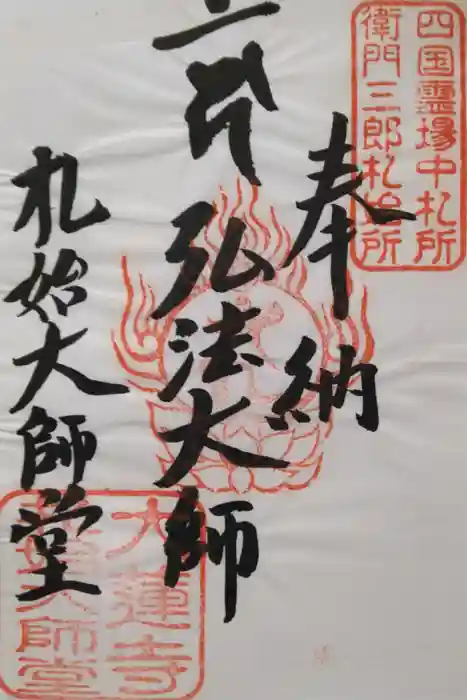 四国霊場中札所
衛門三郎札始所
奉納
弘法大師
札始大師堂
大蓮寺
札始大師堂